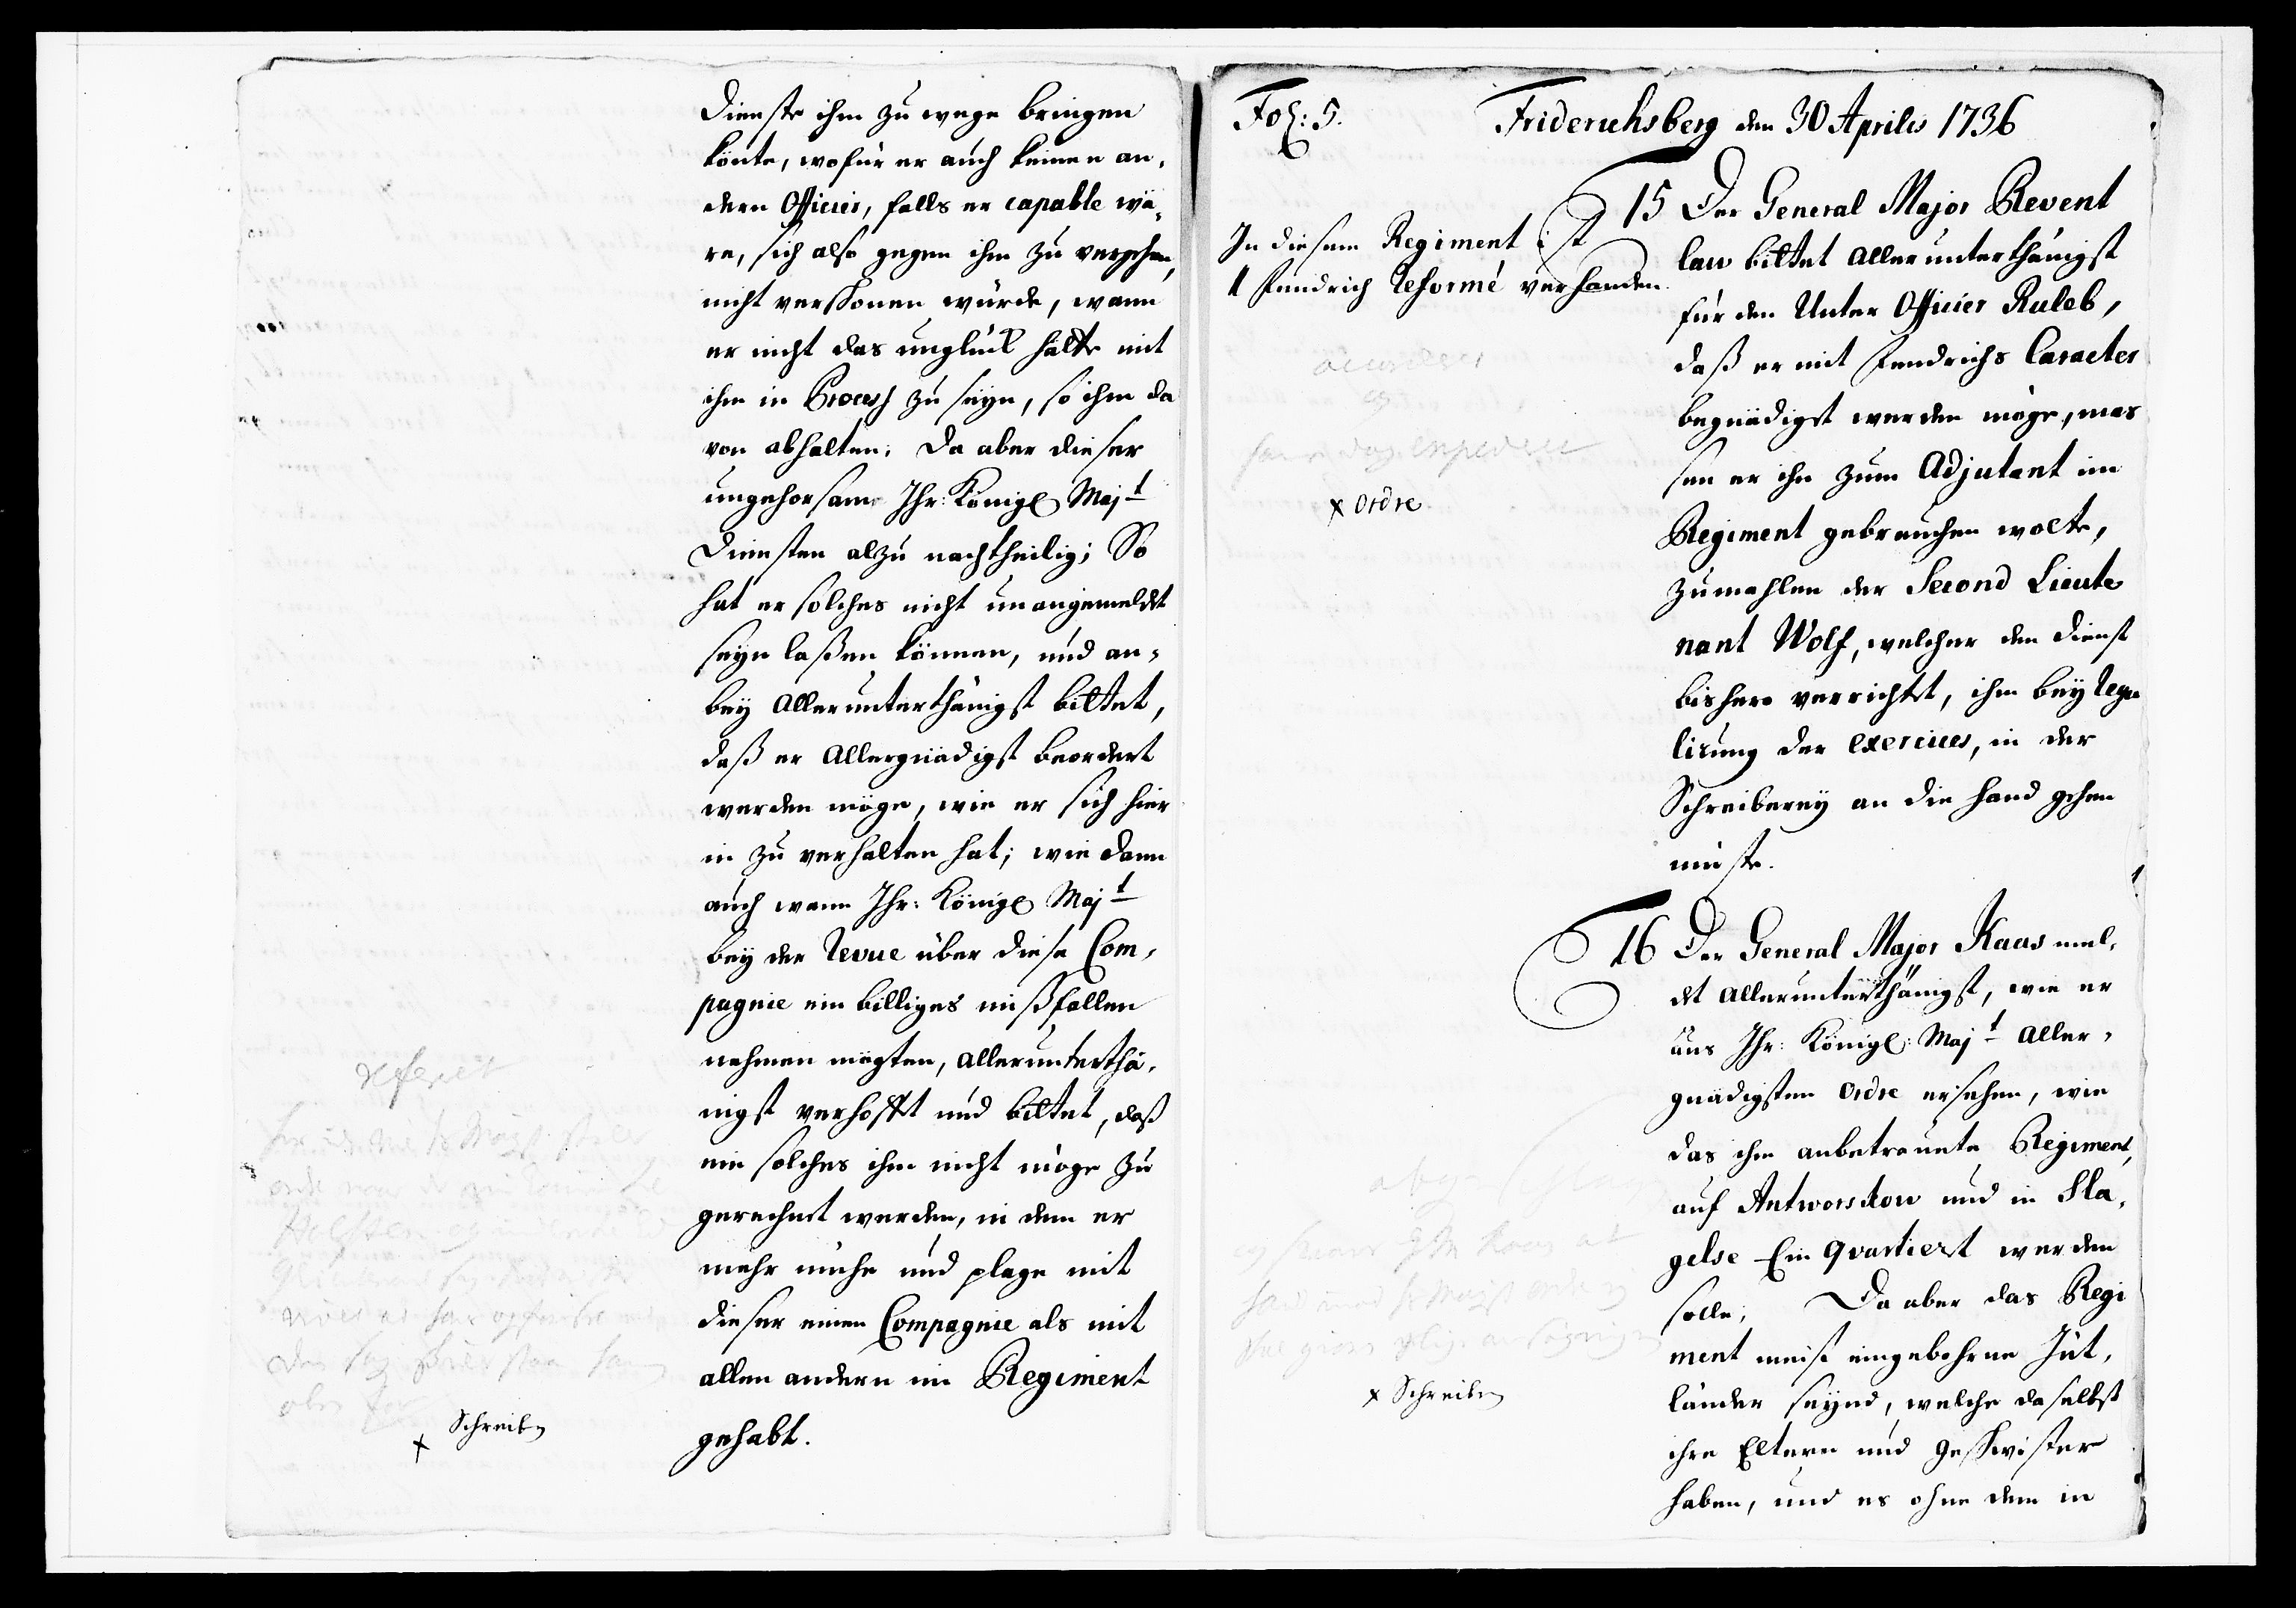 Dienste ihm zu wege bringen
könte, wofür er auch keinen an,
dern Officier, falls er capable wä,
re, sich also gegen ihm zu vergehen,
nicht verschonen würde, wann
er nicht das unglück hätte mit
ihm in Process zu seyn, so ihm da
von abhalten; Da aber dieser
ungehorsam Ihr: Königl Majt
Diensten alzu nachtheilig; So
hat er solches nicht unangemeldet
seyn laßen können, und an,
bey allerunterthänigst bittet,
daß er Allergnädigst beordert
werden möge, wie er sich hier
in zu verhalten hat; wie dann
auch wann Ihr: Königl Majt
bey der Revue über diese Com,
pagnie ein billiges mißfallen
nehmen mögten, allerunterthä,
nigst verhofft und bittet, daß
ein solches ihm nicht möge zu
gerechnet werden, in dem er
mehr mühe und plage mit
dieser einen Compagnie als mit
allen andern im Regiment
gehabt.
referet
x Schreiben
Fol: 5.
Friderichsberg den 30 Aprilis 1736
In diesem Regiment ist
1 Fendrich Reformé verhanden.
x Ordre
15 Der General Major Revent
lau bittet allerunterthänigst
für den Unter Officier Ruleb,
daß er mit Fendrichs Caracter
begnädigst werden möge, mas
sen er ihn zum Adjutant im
Regiment gebrauchen wolte,
zumahlen der Second Lieute
nant Wolf, welcher den Dienst
bishero verrichtet, ihm bey regu
lirung der exercices, in der
Schreiberey an die hand gehen
müste.
16 Der General Major Kaas mel,
det allerunterthänigst, wie er
aus Ihr: Königl: Majt Aller,
gnädigsten Ordre ersehen, wie
das ihm anbetraute Regiment,
auf Antworskow und in Sla,
gelse Ein quartiert werden
solle; Da aber das Regi
ment meist eingebohrne Jüt,
länder seynd, welche daselbst
ihre Eltern und geschwister
haben, und es ohne dem in
x Schreiben